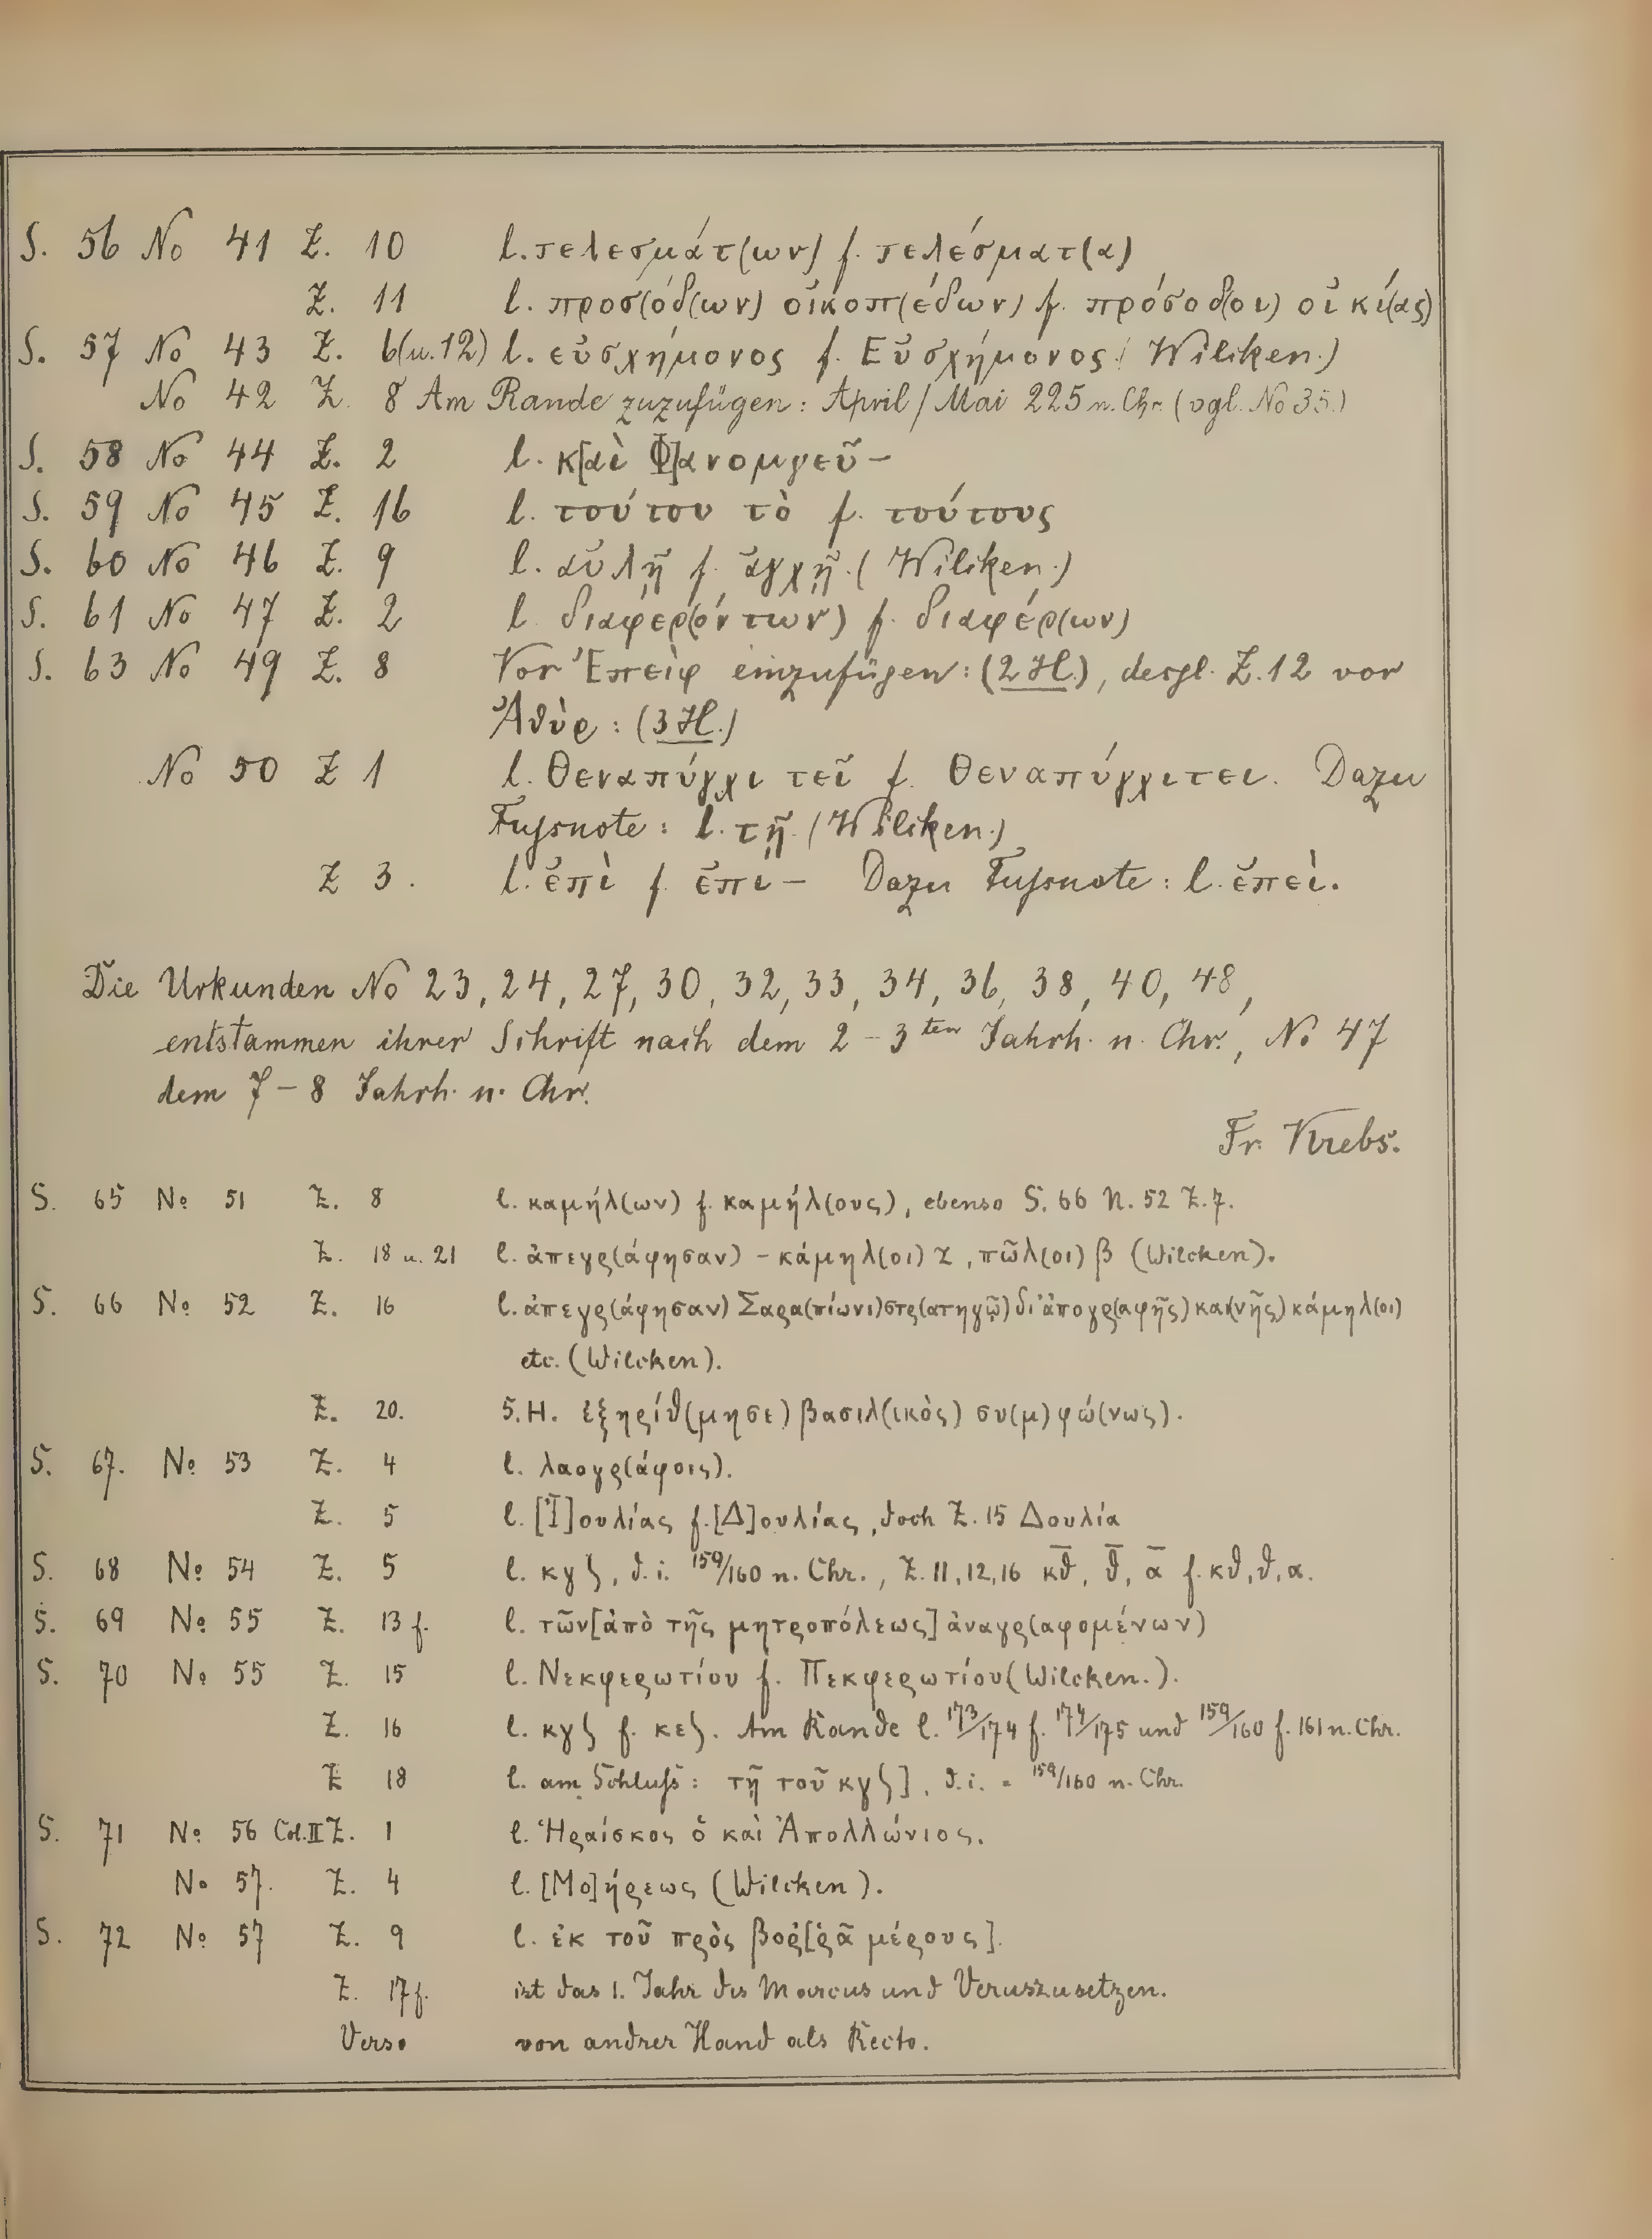 S. 56 No 41 Z. 10 l. τελεσμάτ(ων) f. τελέσματ(α)
Z. 11 l. προσ(όδ(ων) οἰκοπ(έδων) f. πρόσοδ(οι) οἰκί(ας)
S. 57 No 43 Z. 6(u.12) l. εὐσχήμονος f. Εὐσχήμονος (Wilcken.)
No 42 Z. 8 Am Rande zuzufügen: April/Mai 225 n. Chr. (vgl. No 35.)
S. 58 No 44 Z. 2 l. κ[αὶ Φ]ανομγεῦ-
S. 59 No 45 Z. 16 l. τούτου τὸ f. τούτους
S. 60 No 46 Z. 9 l. αὐλῇ f. ἀγχῇ. (Wilcken.)
S. 61 No 47 Z. 2 l. διαφερ(όντων) f. διαφέρ(ων)
S. 63 No 49 Z. 8 Vor Ἐπεὶφ einzufügen: (2 H.), desgl. Z. 12 vor
Ἁθὺρ: (3 H.)
No 50 Z 1 l. Θεναπύγχι τεῖ f. Θεναπύγχιτει. Dazu
Fussnote: l. τῇ. (Wilcken.)
Z 3. l. ἐπὶ f. ἐπι- Dazu Fussnote: l. ἐπεὶ.
Die Urkunden No 23, 24, 27, 30, 32, 33, 34, 36, 38, 40, 48,
entstammen ihrer Schrift nach dem 2-3ten Jahrh. n. Chr., No 47
dem 7-8 Jahrh. n. Chr.
Fr. Krebs.
S. 65 No 51 Z. 8 l. καμήλ(ων) f. καμήλ(ους), ebenso S. 66 N. 52 Z. 7.
Z. 18 u. 21 l. ἀπεγρ(άφησαν) - κάμηλ(οι) ζ, πῶλ(οι) β (Wilcken).
S. 66 No 52 Z. 16 l. ἀπεγρ(άφησαν) Σαρα(πίωνι) στρ(ατηγῷ) δι' ἀπογρ(αφῆς) και(νῆς) κάμηλ(οι)
etc. (Wilcken).
Z. 20. 5. H. ἐξηρίθ(μησε) βασιλ(ικὸς) συ(μ)φώ(νως).
S. 67. No 53 Z. 4 l. λαογρ(άφοις).
Z. 5 l. [Ἰ]ουλίας f. [Δ]ουλίας, doch Z. 15 Δουλία
S. 68 No 54 Z. 5 l. κγ ϛ, d. i. 159/160 n. Chr., Z. 11, 12, 16 κ̅θ̅, θ̅, α̅ f. κθ, θ, α.
S. 69 No 55 Z. 13 f. l. τῶν [ἀπὸ τῆς μητροπόλεως] ἀναγρ(αφομένων)
S. 70 No 55 Z. 15 l. Νεκφερωτίου f. Πεκφερωτίου (Wilcken.).
Z. 16 l. κγ ϛ f. κε ϛ. Am Rande l. 173/174 f. 174/175 und 159/160 f. 161 n. Chr.
Z 18 l. am Schluß: τῇ τοῦ κγ ϛ], d. i. = 159/160 n. Chr.
S. 71 No 56 Col. II Z. 1 l. Ἡραίσκος ὁ καὶ Ἀπολλώνιος.
No 57. Z. 4 l. [Μο]ήρεως (Wilcken).
S. 72 No 57 Z. 9 l. ἐκ τοῦ πρὸς βορ[ρᾶ μέρους].
Z. 17 f. ist das 1. Jahr des Marcus und Verus zu setzen.
Verso von andrer Hand als Recto.